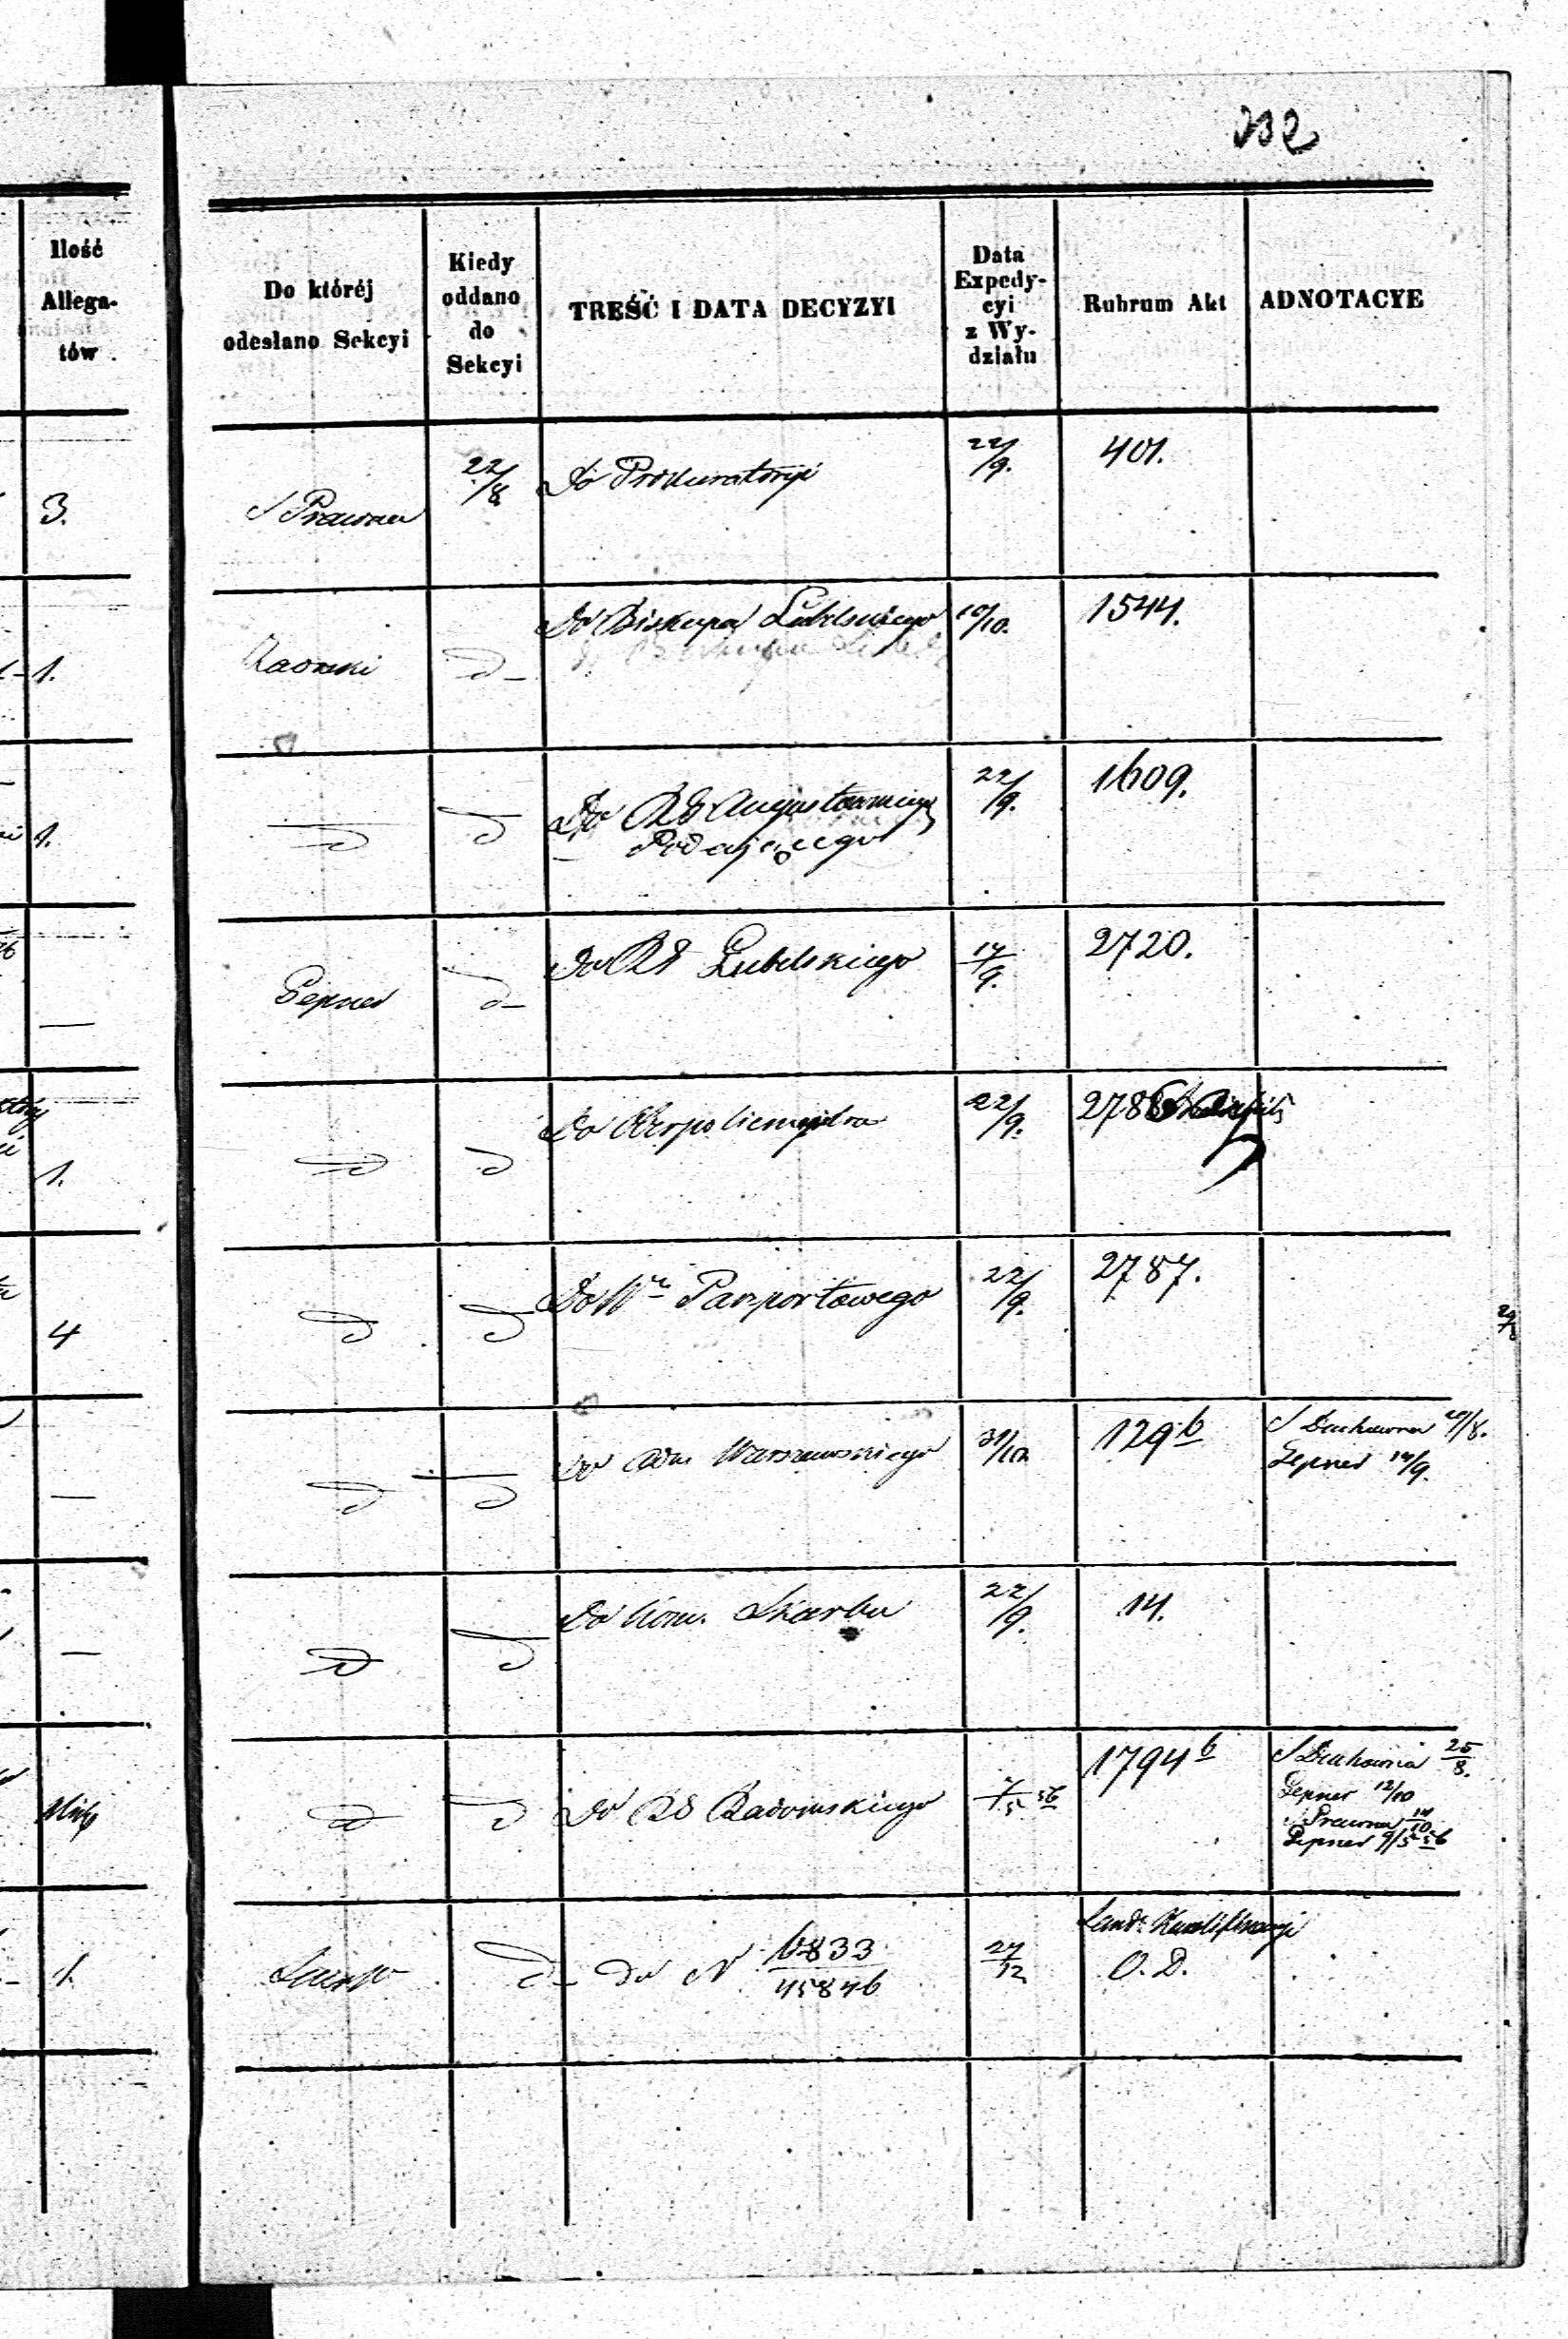 232
Ilość
Allega-
tów
Do któréj
odesłano Sekcyi
Kiedy
oddano
do
Sekcyi
TREŚĆ I DATA DECYZYI
Data
Expedy-
cyi
z Wy-
działu
Rubrum Akt
ADNOTACYE
3.
S Prawna
22/8
Do Prokuratoryi
22/9.
401.
1.
Do Biskupa Lubelskiego
10/10.
1544.
d-
1.
d
d
Do RG Augustowskiego
Podającego
22/9.
1609.
—
Lepner
d-
Do RG Lubelskiego
17/9.
2720.
1.
d
d
Do Oberpolicmajstra
22/9.
4
d
d
Do Włu Paszportowego
22/9.
2787.
—
d
d
Do Adm Warszawskiego
31/10.
129 b
S Duchowna 29/8.
Lepner 14/9.
—
d
d
Do Kom. Skarbu
22/9.
14.
d
d
Do RG Radomskiego
7/5 56
1794 b
S Duchowna 25/8.
Lepner 12/10
S Prawna 14/10
Lepner 9/5 56
1.
d-
do N 6833/45846
27/12
O. D.